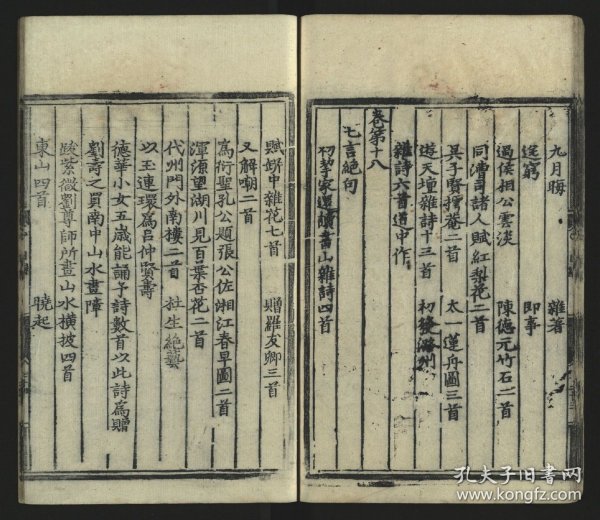 九月晦　雜著
送窮　即事
過侯相公雲淡　陳德元竹石二首
同漕司諸人賦紅梨花二首
吳子賢樗菴二首　太一蓮舟圖三首
遊天壇雜詩十三首　初發潞州
雜詩六首道中作
卷第十八
七言絕句
初挈家還讀書山雜詩四首
賦缾中雜花七首　贈羅友卿三首
又解嘲二首
為衍聖孔公題張公佐湘江春早圖二首
渾源望湖川見百葉杏花二首
代州門外南樓二首　杜生絕藝
以玉連環為呂仲賢壽
德華小女五歲能誦予詩數首以此詩為贈
劉壽之買南中山水畫障
跋紫微劉尊師所畫山水橫披四首
東山四首　曉起
孔夫子旧书网
www.kongfz.com